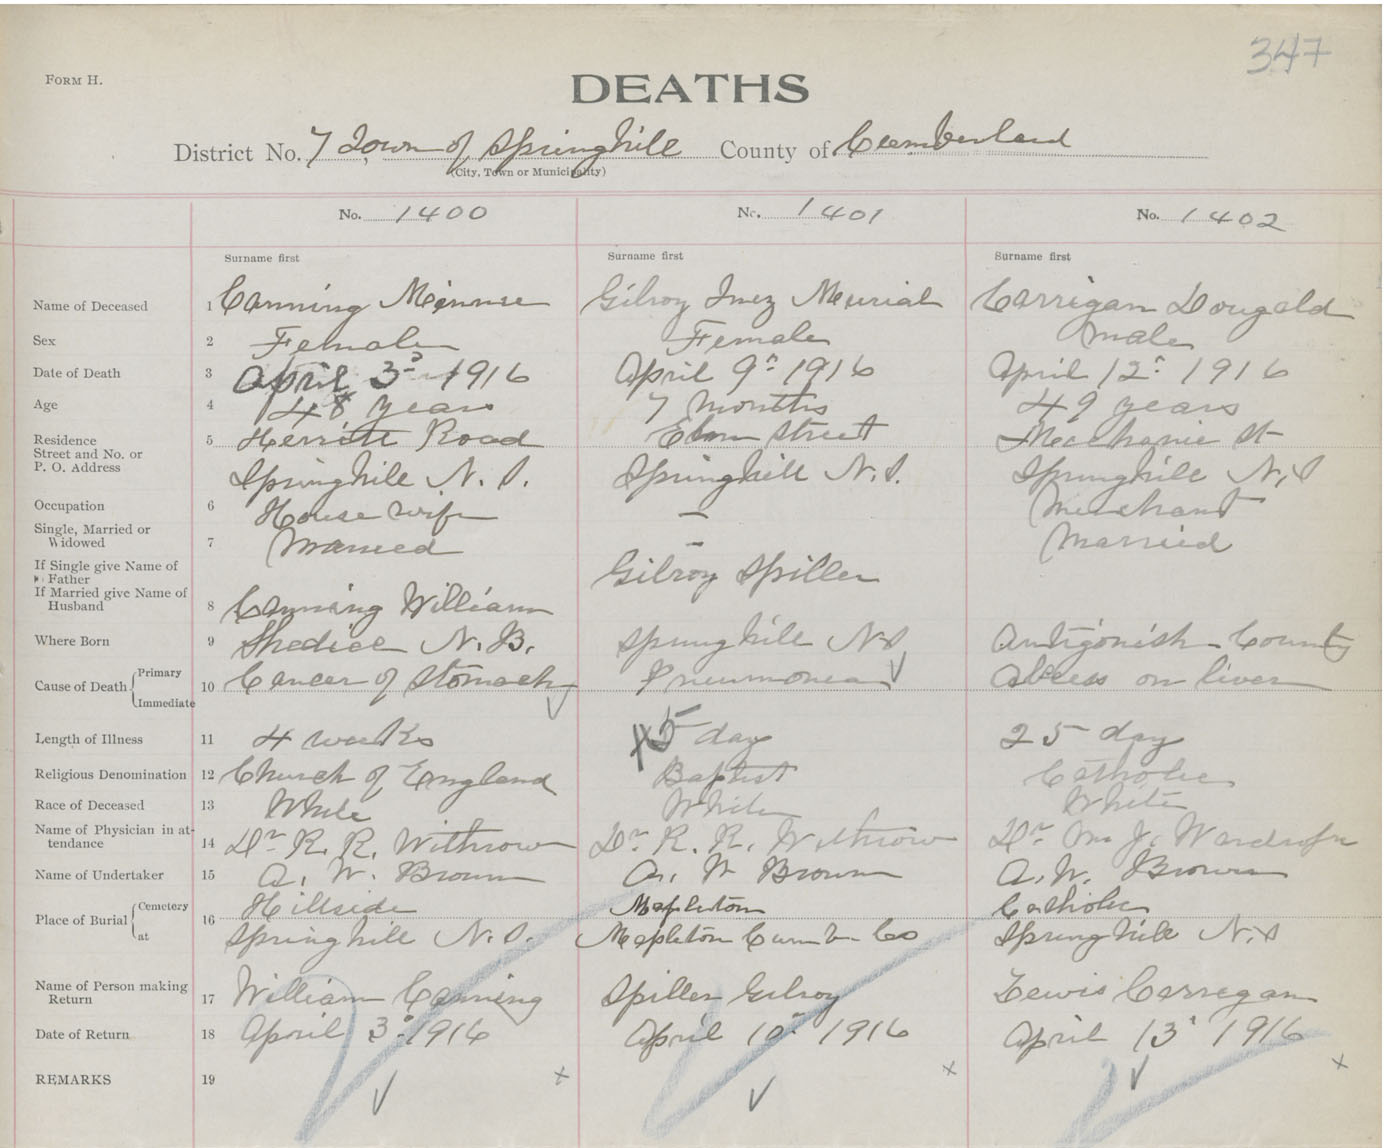 347
FORM H.
DEATHS
District No. 7 Town of Springhill County of Cumberland
(City, Town or Municipality)
No. 1400 No. 1401 No. 1402
Surname first Surname first Surname first
Name of Deceased 1 Canning Minnie Gilroy Inez Meurial Carrigan Dougald
Sex 2 Female Female Male
Date of Death 3 April 3rd 1916 April 9th 1916 April 12th 1916
Age 4 48 years 7 months 49 years
Residence 5 Herritt Road Elm Street Mechanic St
Street and No. or
P. O. Address Springhill N.S. Springhill N.S. Springhill N.S
Occupation 6 House wife – Merchant
Single, Married or
Widowed 7 Married – Married
If Single give Name of
Father Gilroy Spiller
If Married give Name of
Husband 8 Canning William
Where Born 9 Shediac N.B. Springhill N.S Antigonish County
Cause of Death Primary 10 Cancer of Stomach Pneumonea Abcess on liver
Immediate
Length of Illness 11 4 weeks 5 day 25 day
Religious Denomination 12 Church of England Baptist Catholic
Race of Deceased 13 White White White
Name of Physician in at-
tendance 14 Dr R. R. Withrow Dr R. R. Withrow Dr M. J. Wardrope
Name of Undertaker 15 A. W. Brown A. W Brown A. W. Brown
Place of Burial Cemetery 16 Hillside Mapleton Catholic
at Springhill N.S. Mapleton Cumb Co Springhill N.S
Name of Person making
Return 17 William Canning Spiller Gilroy Lewis Carregan
Date of Return 18 April 3rd 1916 April 10th 1916 April 13th 1916
REMARKS 19